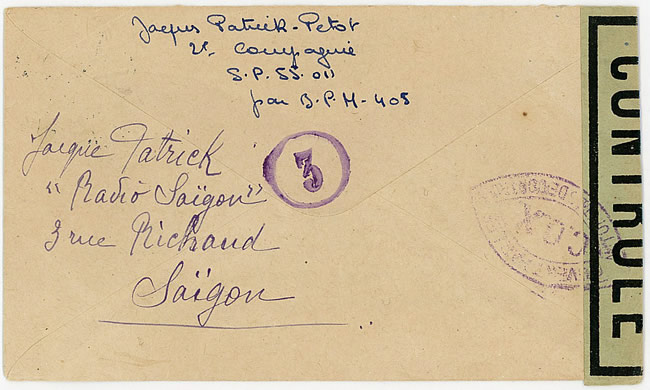 Jacques Patrick-Petot
2e Compagnie
S.P. 55.011
par B.P.M-405
Jacque Patrick
"Radio Saïgon"
3 rue Richaud
Saïgon
3
CONTROLE